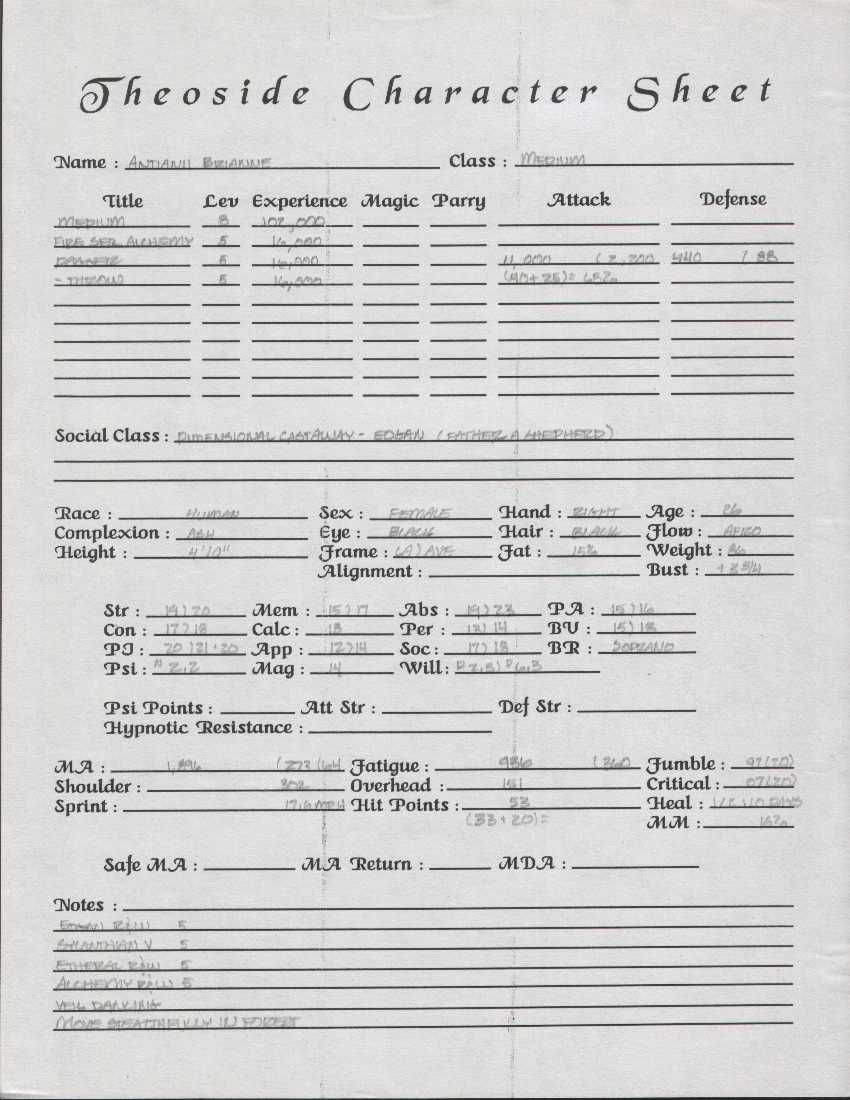 Theoside Character Sheet
Name : ANTIANII BRIANNE Class : MEDIUM
Title Lev Experience Magic Parry Attack Defense
MEDIUM 8 102,000
FIRE SER. ALCHEMY 5 16,000
5 16,000 11,000 (2,200 440 / 88
- THROW 5 16,000 (40+25)= 65%
Social Class : DIMENSIONAL CASTAWAY - EDSAN (FATHER A SHEPHERD)
Race : HUMAN Sex : FEMALE Hand : RIGHT Age : 26
Complexion : ASH Eye : BLACK Hair : BLACK Flow : AFRO
Height : 4'10" Frame : (A) AVE Fat : 15% Weight : 86
Alignment : Bust : +3 3/4
Str : 19)20 Mem : 15)17 Abs : 19)23 PA : 15)16
Con : 17)18 Calc : 13 Per : 13)14 BV : 15)18
PI : 20)21+20 App : 12)14 Soc : 17)18 BR : SOPRANO
Psi : 2,2 Mag : 14 Will :
Psi Points : Att Str : Def Str :
Hypnotic Resistance :
MA : 1,896 (273 (64 Fatigue : 936 (360 Fumble : 97(20)
Shoulder : 302 Overhead : 151 Critical : 07(20)
Sprint : 17.6 MPH Hit Points : 53 Heal : DAYS
(33+20)= MM : 16%
Safe MA : MA Return : MDA :
Notes :
EDSAN R/W 5
5
ETHERAL R/W 5
ALCHEMY R/W 5
VEIL DANCING
MOVE STEALTHFULLY IN FOREST